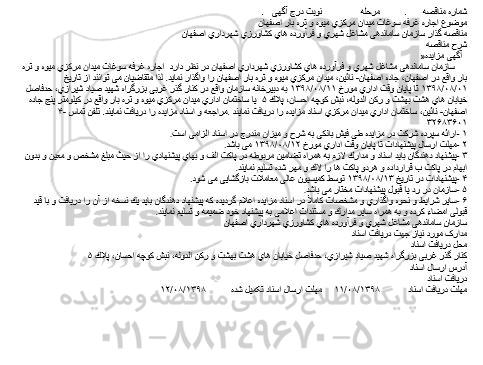 شماره مناقصه : . مرحله : نوبت درج آگهی .
موضوع اجاره غرفه سوغات میدان مرکزي میوه و تره بار اصفهان
مناقصه گذار سازمان ساماندهی مشاغل شهري و فرآورده هاي کشاورزي شهرداري اصفهان
شرح مناقصه
آگهی مزایده«
سازمان ساماندهی مشاغل شهري و فرآورده هاي کشاورزي شهرداري اصفهان در نظر دارد اجاره غرفه سوغات میدان مرکزي میوه و تره
بار واقع در اصفهان، جاده اصفهان- نائین، میدان مرکزي میوه و تره بار اصفهان را واگذار نماید. لذا متقاضیان می توانند از تاریخ
۱۳۹۸/۰۸/۰۱ تا پایان وقت اداري مورخ ۱۳۹۸/۰۸/۱۱ به دبیرخانه سازمان واقع در کنار گذر غربی بزرگراه شهید صیاد شیرازي، حدفاصل
خیابان هاي هشت بهشت و رکن الدوله، نبش کوچه احسان، پلاك ۵ یا ساختمان اداري میدان مرکزي میوه و تره بار واقع در کیلومتر پنج جاده
اصفهان- نائین، ساختمان اداري میدان مرکزي اسناد مزایده را دریافت نمایند .مراجعه و اسناد مزایده را دریافت نمایند. تلفن تماس ۴-
۳۲۶۸۳۶۰۱
۱ -ارائه سپرده شرکت در مزایده طی فیش بانکی به شرح و میزان مندرج در اسناد الزامی است.
۲ -مهلت ارسال پیشنهادات تا پایان وقت اداري مورخ ۱۳۹۸/۰۸/۱۲ می باشد.
۳ -پیشنهاد دهندگان باید اسناد و مدارك لازم به همراه تضامین مربوطه در پاکت الف و بهاي پیشنهادي را از حیث مبلغ مشخص و معین و بدون
ابهام در پاکت ب قرارداده و هردو پاکت ها را لاك و مهر شده تسلیم نمایند.
۴ -پیشنهادات در تاریخ ۱۳۹۸/۰۸/۱۳ توسط کمیسیون عالی معاملات بازگشایی می شود.
۵ -سازمان در رد یا قبول پیشنهادات مختار می باشد.
۶ -سایر شرایط و نحوه واگذاري و مشخصات کاملاً در اسناد مزایده اعلام گردیده که پیشنهاد دهندگان باید یك نسخه از آن را دریافت و با قید
قبولی امضاء کرده و به همراه سایر مدارك و مستندات اعلامی به پیشنهاد خود ضمیمه و تسلیم نمایند.
سازمان ساماندهی مشاغل شهري و فرآورده هاي کشاورزي شهرداري اصفهان
مدارک مورد نیاز جهت دریافت اسناد
محل دریافت اسناد
کنار گذر غربی بزرگراه شهید صیاد شیرازي، حدفاصل خیابان هاي هشت بهشت و رکن الدوله، نبش کوچه احسان، پلاك ۵
آدرس ارسال اسناد
دریافت اسناد
مهلت دریافت اسناد ۱۱/۰۸/۱۳۹۸ مهلت ارسال اسناد تکمیل شده ۱۲/۰۸/۱۳۹۸
پایگاه اطلاع رسانی مناقصه و مزایده
۰۲۱-۸۸۳۴۹۶۷۰-۵